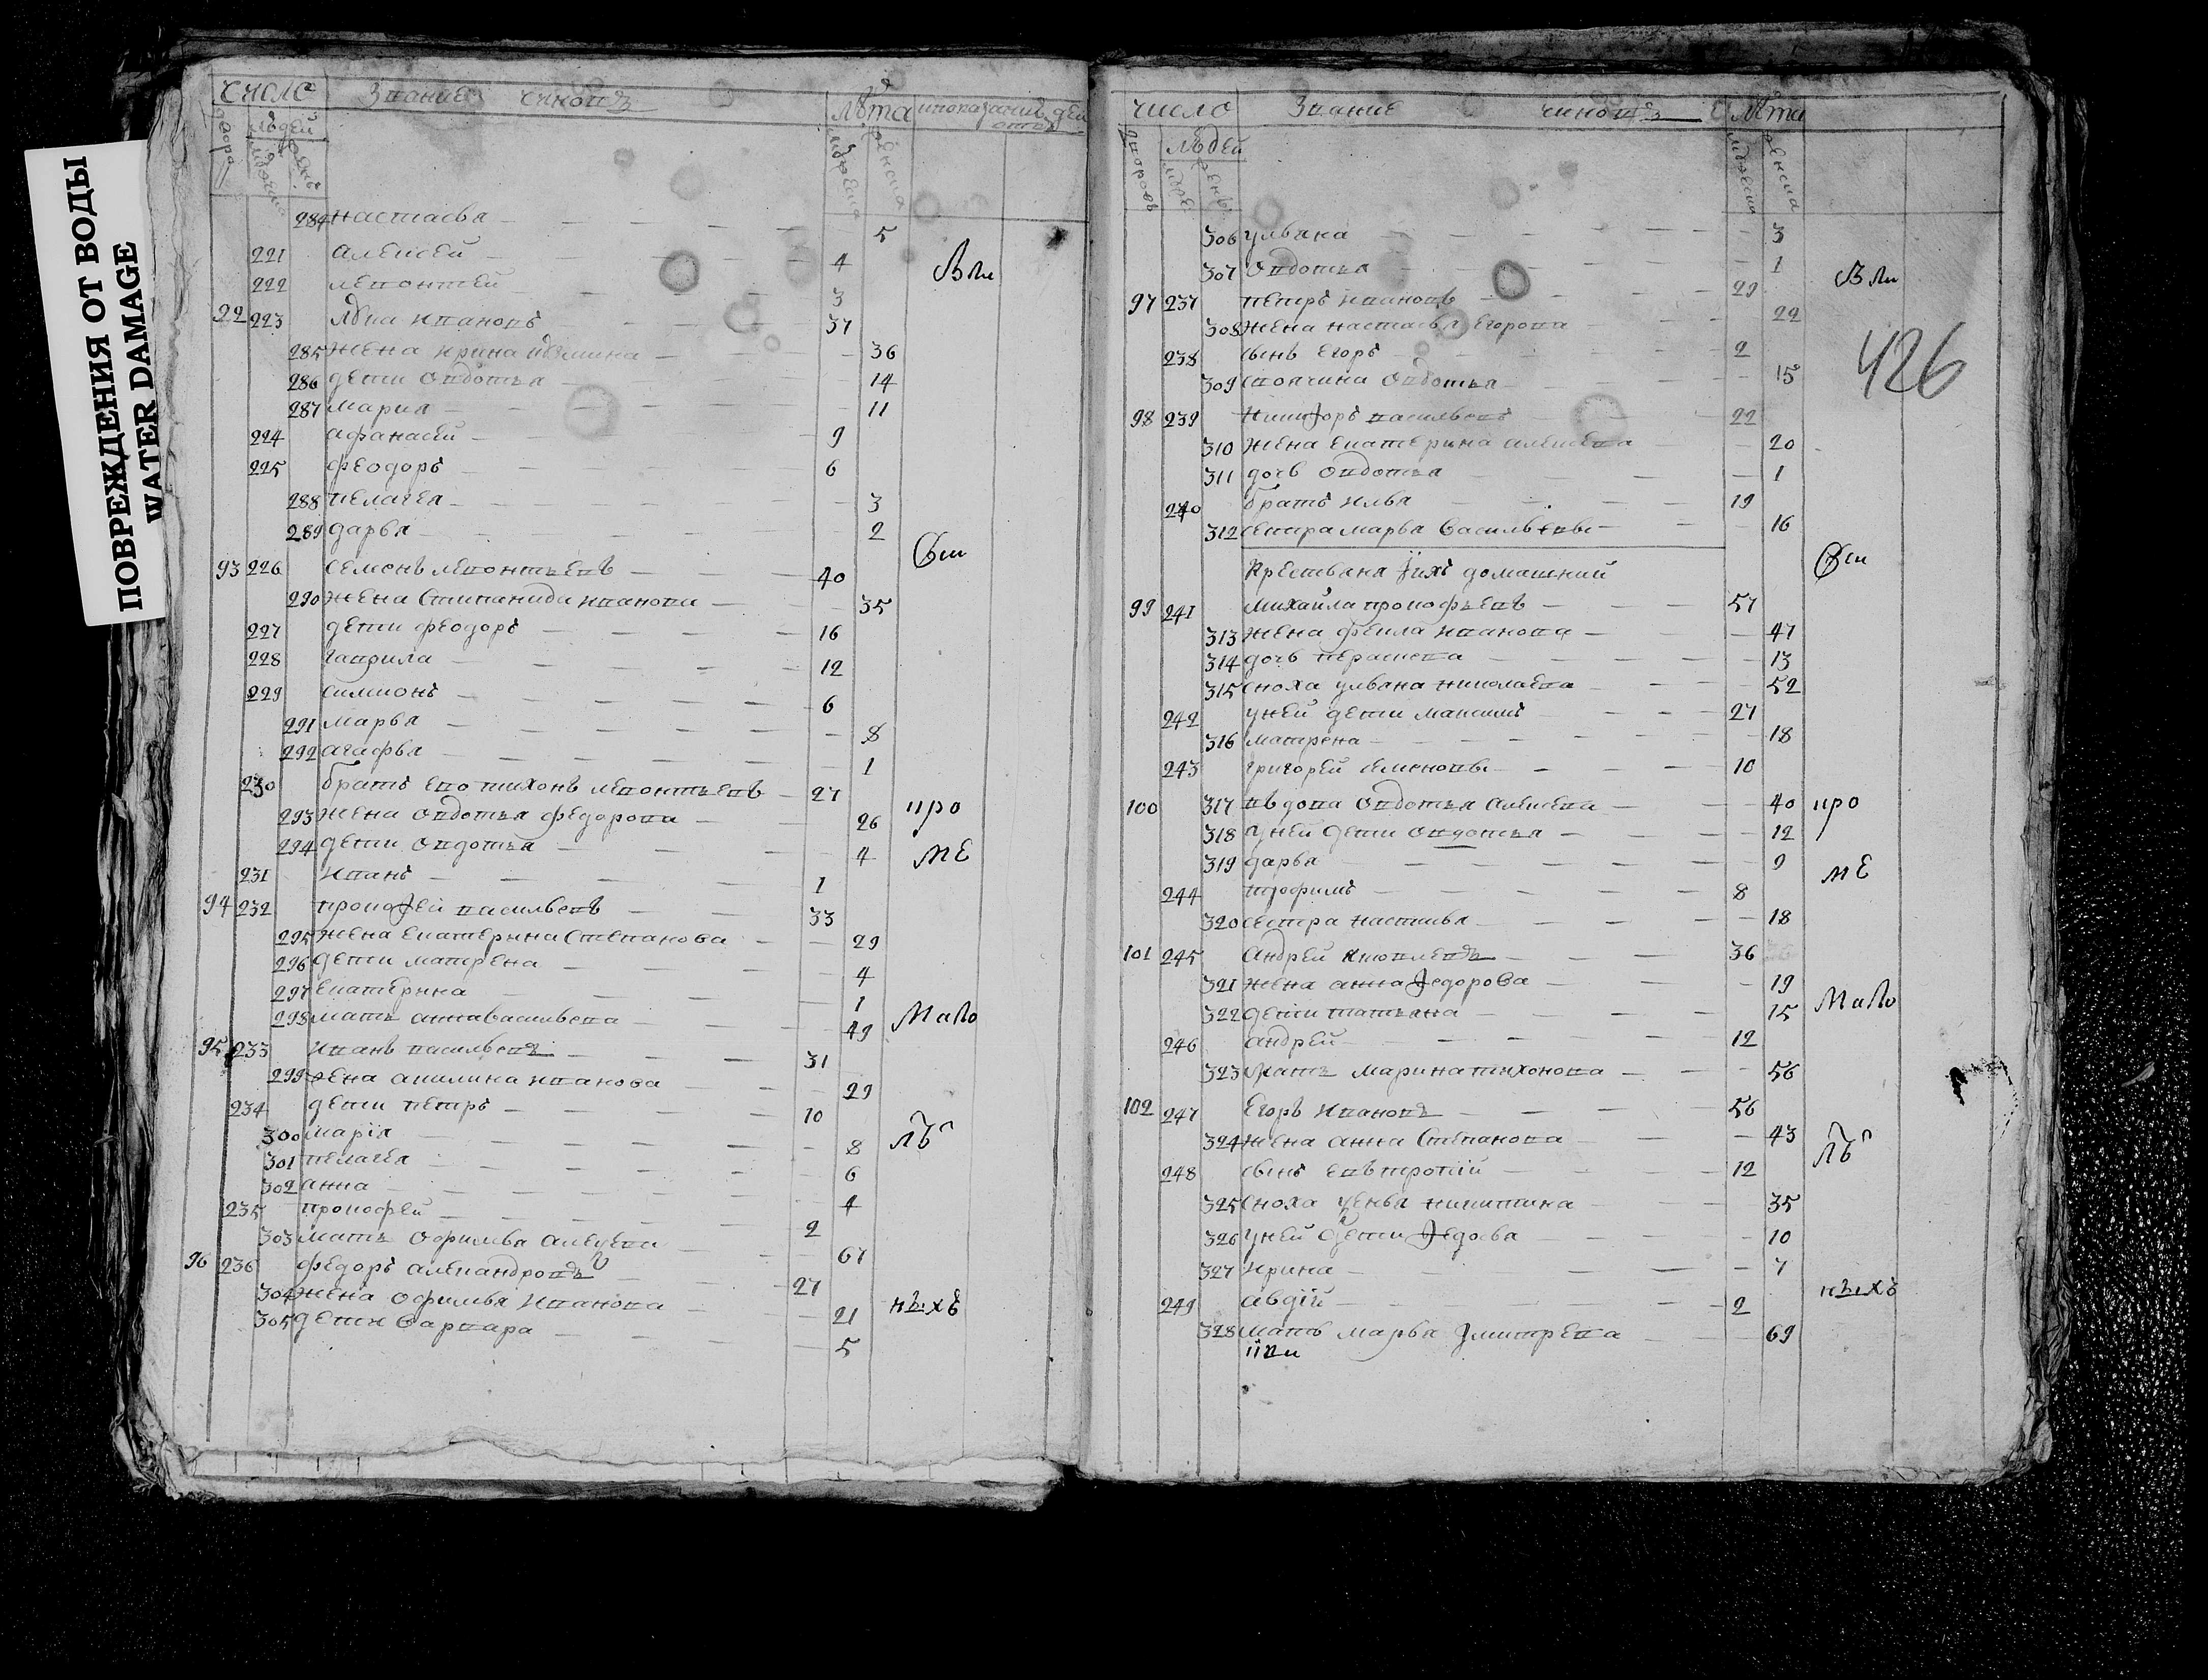 ПОВРЕЖДЕНИЯ ОТ ВОДЫ
WATER DAMAGE
число Звание чиновъ Лѣта
людей
284 настасья 5
221 алексей 4
Вси
222 леонтей 3
92 223 ивановъ 37
285 жена ирина 36
286 дети овдотья 14
287 мария 11
224 афанасей 9
225 феодоръ 6
288 пелагея 3
289 дарья 2
93 226 семенъ леонтьевъ 40
290 жена Стипанида иванова 35
227 дети феодоръ 16
228 гаврила 12
229 симионъ 6
291 марья 8
292 агафья 1
230 братъ ево тихонъ леонтьевъ 27
293 жена овдотья федорова 26
про
294 дети овдотья 4
ме
231 иванъ 1
94 232 прокофей васильевъ 33
295 жена екатерина Степанова 29
296 дети матрена 4
297 екатерина 1
298 мать анна васильева 49
мало
95 233 иванъ васильевъ 31
299 жена акилина иванова 29
234 дети петръ 10
300 марiя 8
лѣ
301 пелагея 6
302 анна 4
235 прокофей 2
303 мать офимья 67
96 236 федоръ александровъ 27
304 жена офимья иванова 21
ныхъ
305 дети варвара 5
число Звание чиновъ Лѣта
людей
306 ульяна 3
307 овдотья 1
Вси
97 237 петръ ивановъ 29
308 жена настасья егорова 22
426
238 сынъ егоръ 2
309 своячина овдотья 15
98 239 никифоръ васильевъ 22
310 жена екатерина алексеева 20
311 дочь овдотья 1
240 братъ илья 19
312 сестра марья васильева 16
крестьяня ихъ домашний
99 241 михайла прокофьевъ 57
313 жена фекла иванова 47
314 дочь 13
315 сноха ульяна николаева 52
242 у ней дети максимъ 27
316 матрена 18
243 григорей семеновъ 10
100 317 вдова овдотья алексеева 40
про
318 у ней дети овдотья 12
319 дарья 9
ме
244 трофимъ 8
320 сестра настасья 18
101 245 андрей яковлевъ 36
321 жена анна федорова 19
322 дети татьяна 15
мало
246 андрей 12
323 мать марина тихонова 56
102 247 егоръ ивановъ 56
324 жена анна Степанова 43
лѣ
248 сынъ евтропiй 12
325 сноха никитина 35
326 у ней дети федосья 10
327 ирина 7
ныхъ
249 авдiй 2
328 мать марья дмитрева 69